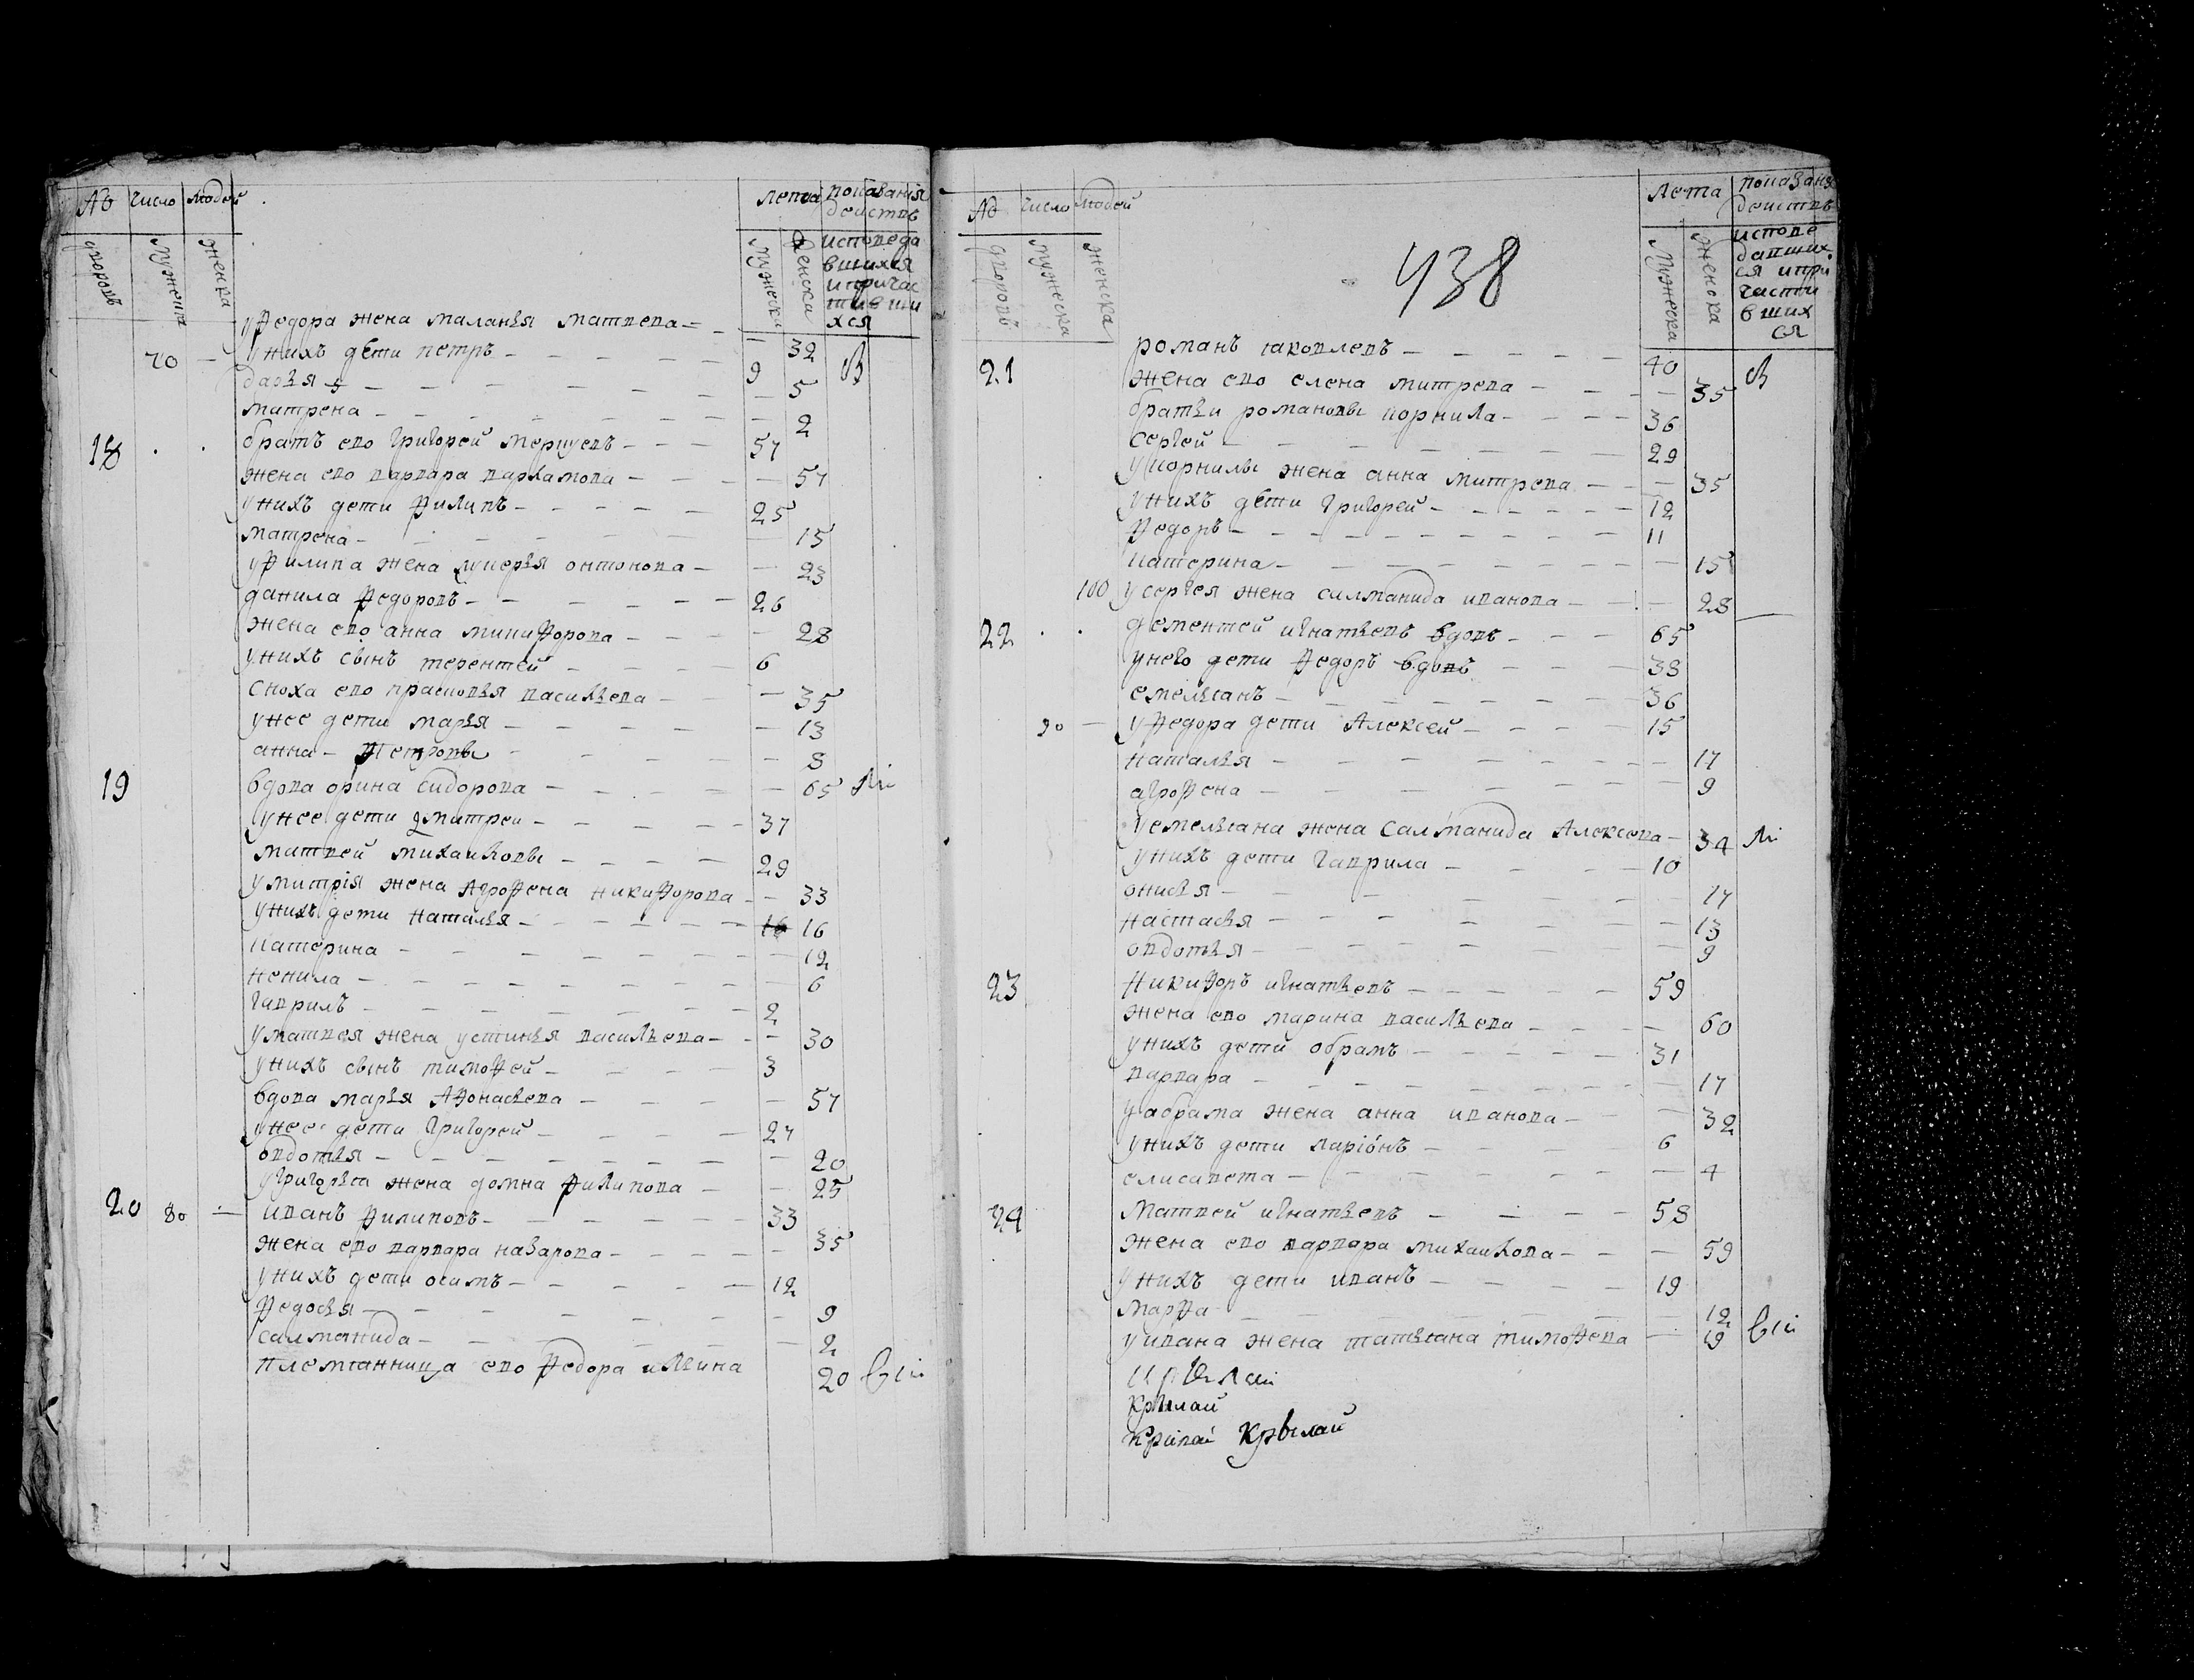 № число людей
лета показания
действъ
дворовъ мужеска женска
мужеска женска исповеда
вшихся
и причас
тивши
хся
уфедора жена маланья матвева 32
70 унихъ дети петръ 9
дарья 5
матрена 2
18 братъ ево григорей меркуевъ 57
жена ево варвара вархамова 57
унихъ дети филипъ 25
матрена 15
уфилипа жена лукерья онтонова 23
данила федоровъ 26
жена ево анна микифорова 28
унихъ сынъ терентей 6
сноха ево прасковья васильева 35
унее дети марья 13
анна петровы 8
19 вдова орина сидорова 65
унее дети дмитреи 37
матвей михаиловы 29
умитрія жена агрофена никифорова 33
унихъ дети наталья 16 16
катерина 12
ненила 6
гаврилъ 2
уматвея жена устинья васильева 30
унихъ сынъ тимофей 3
вдова марья афонасьева 57
унее дети григорей 27
овдотья 20
угригорья жена домна филипова 25
20 80 иванъ филиповъ 33
жена ево варвара назарова 35
унихъ дети осипъ 12
федосья 9
салманида 2
племянница ево федора ильина 20
№ число людей
лета показаня
действъ
дворовъ мужеска женска
438
мужеска женска испове
давших
ся и при
части
вших
ся
21 романъ яковлевъ 40
жена ево елена митрева 35
братьи романовы корнила 36
сергей 29
укорнилы жена анна митрева 35
унихъ дети григорей 12
федоръ 11
катерина 15
100 усергея жена салманида иванова 28
22 дементей игнатьевъ вдовъ 65
унего дети федоръ вдовъ 38
емельянъ 36
90 уфедора дети Алексей 15
наталья 17
агрофена 9
уемельяна жена салманида Алексева 34
унихъ дети гаврила 10
онисья 17
настасья 13
овдотья 9
23 никифоръ игнатьевъ 59
жена ево марина васильева 60
унихъ дети обрамъ 31
варвара 17
уабрама жена анна иванова 32
унихъ дети ларіонъ 6
елисавета 4
24 матвей игнатьевъ 58
жена ево варвара михаилова 59
унихъ дети иванъ 19
марфа 12
уивана жена татьяна тимофева 19
крылай
крылай